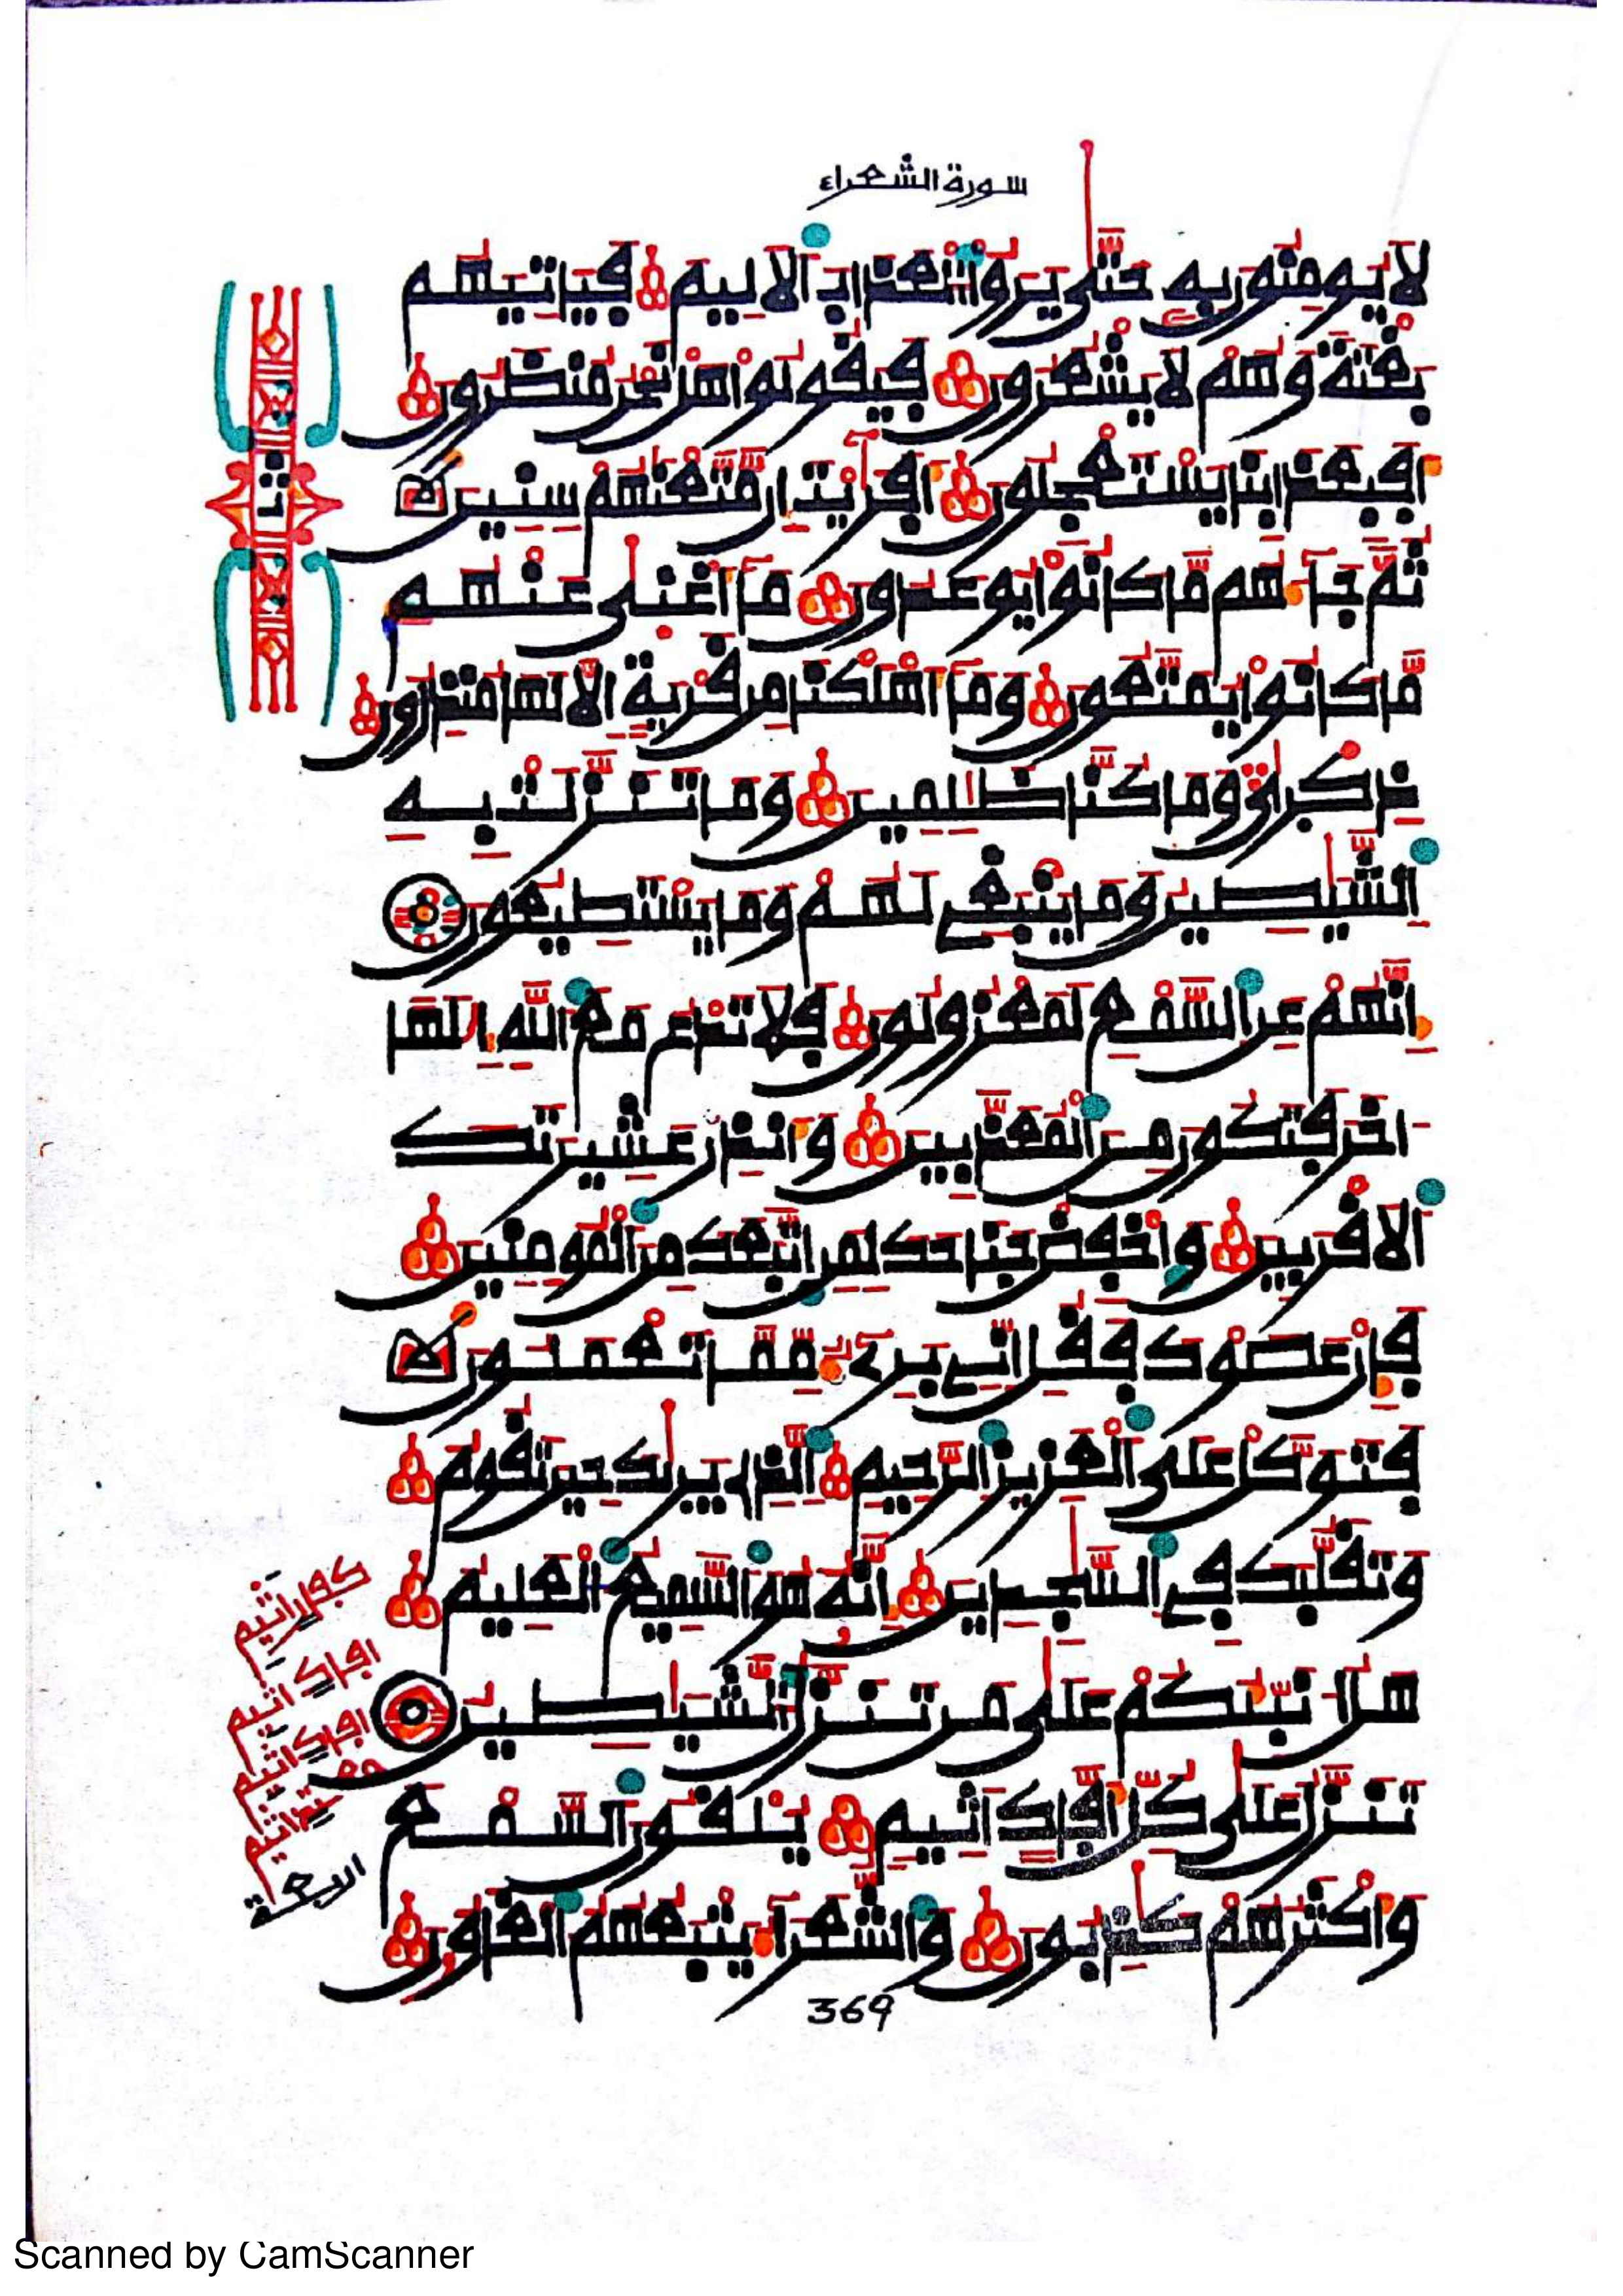 سورة الشعراء
لا يومنون به حتى يروا العذاب الاليم فياتيهم
بغتة وهم لا يشعرون فيقولوا هل نحن منظرون
افبعذابنا يستعجلون افريت ان متعنهم سنين
ثم جاءهم ما كانوا يوعدون ما اغنى عنهم
ما كانوا يمتعون وما اهلكنا من قرية الا لها منذرون
ذكرى وما كنا ظلمين وما تنزلت به
الشيطين وما ينبغي لهم وما يستطيعون
انهم عن السمع لمعزولون فلا تدع مع الله الها
اخر فتكون من المعذبين وانذر عشيرتك
الاقربين واخفض جناحك لمن اتبعك من المومنين
فإن عصوك فقل اني بريء مما تعملون
فتوكل على العزيز الرحيم الذي يريك حين تقوم
وتقلبك في السجدين انه هو السميع العليم
هل انبئكم على من تنزل الشيطين
تنزل على كل افاك اثيم يلقون السمع
واكثرهم كذبون والشعراء يتبعهم الغاون
كفار اثيم
افاك اثيم
افاك اثيم
اثيم
اربعة
369
Scanned by CamScanner